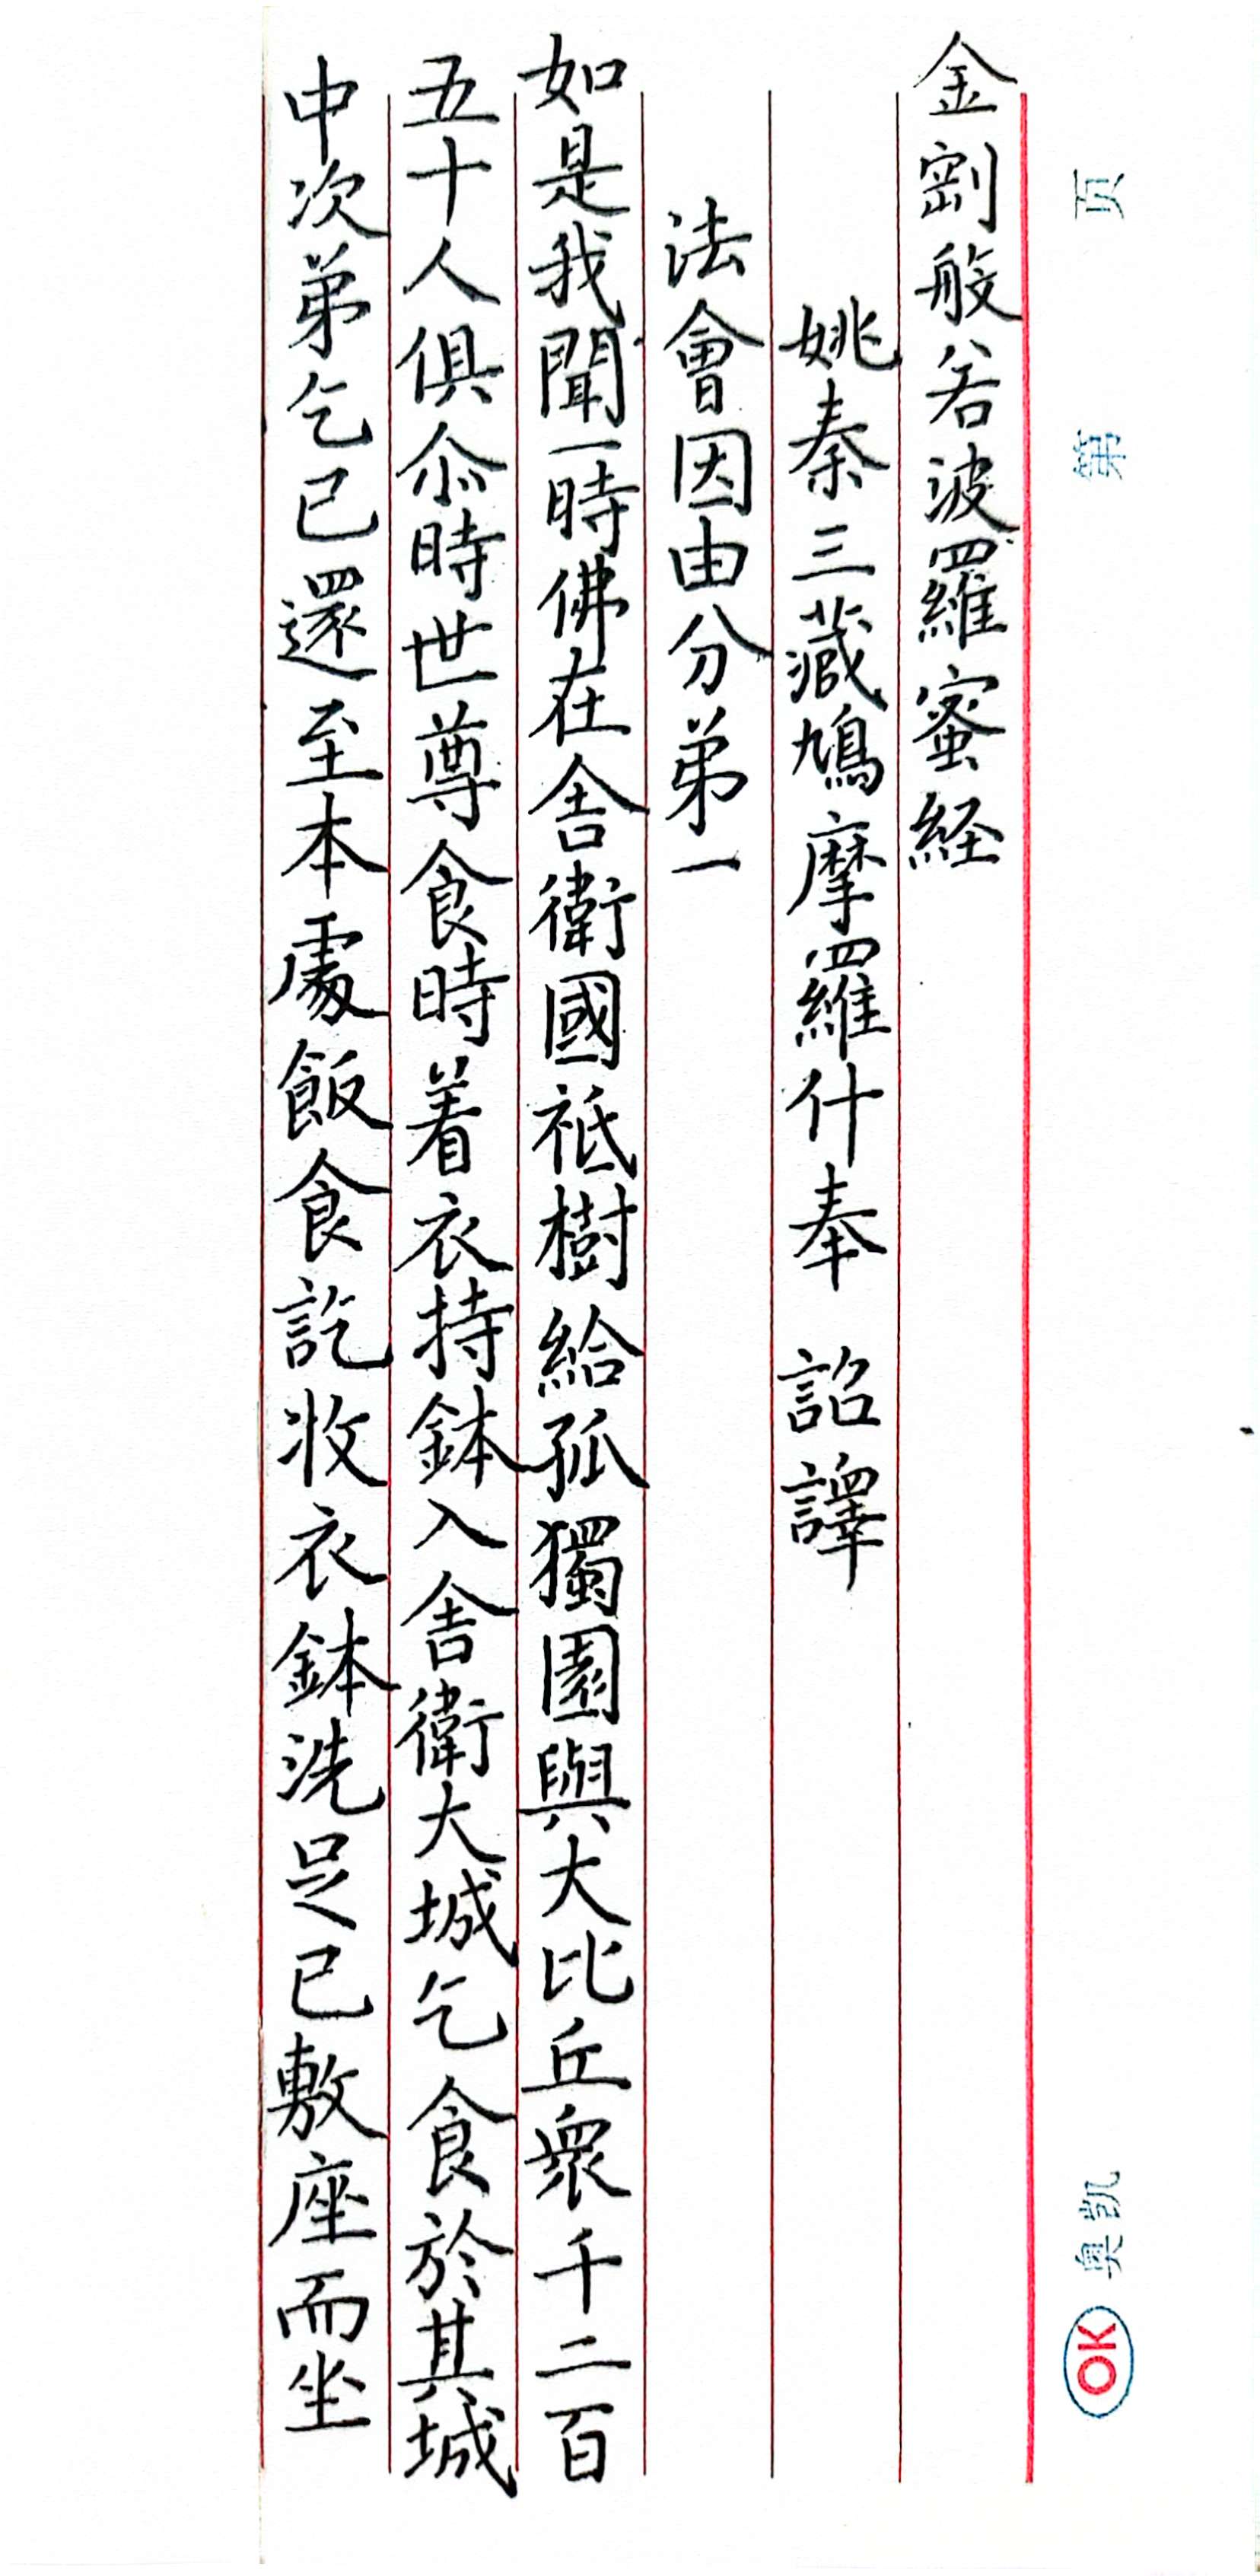 金剛般若波羅蜜経
姚秦三藏鳩摩羅什奉 詔譯
法會因由分弟一
如是我聞一時佛在舎衛國祇樹給孤獨園與大比丘衆千二百
五十人俱尒時世尊食時着衣持鉢入舎衛大城乞食於其城
中次弟乞已還至本處飯食訖收衣鉢洗足已敷座而坐
第 页
OK 奥凯